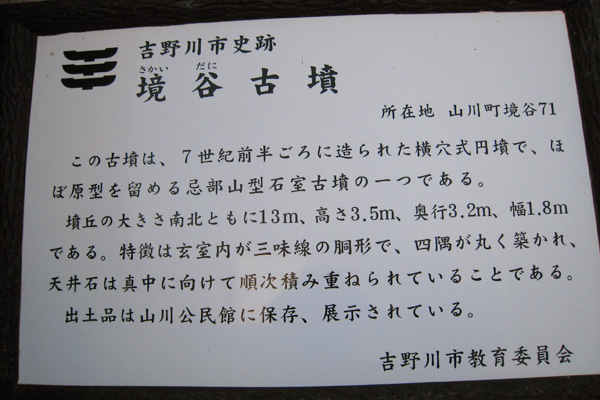 吉野川市史跡
さかい だに
境谷古墳
所在地 山川町境谷71
この古墳は、7世紀前半ごろに造られた横穴式円墳で、ほ
ぼ原型を留める忌部山型石室古墳の一つである。
墳丘の大きさ南北ともに13m、高さ3.5m、奥行3.2m、幅1.8m
である。特徴は玄室内が三味線の胴形で、四隅が丸く築かれ、
天井石は真中に向けて順次積み重ねられていることである。
出土品は山川公民館に保存、展示されている。
吉野川市教育委員会